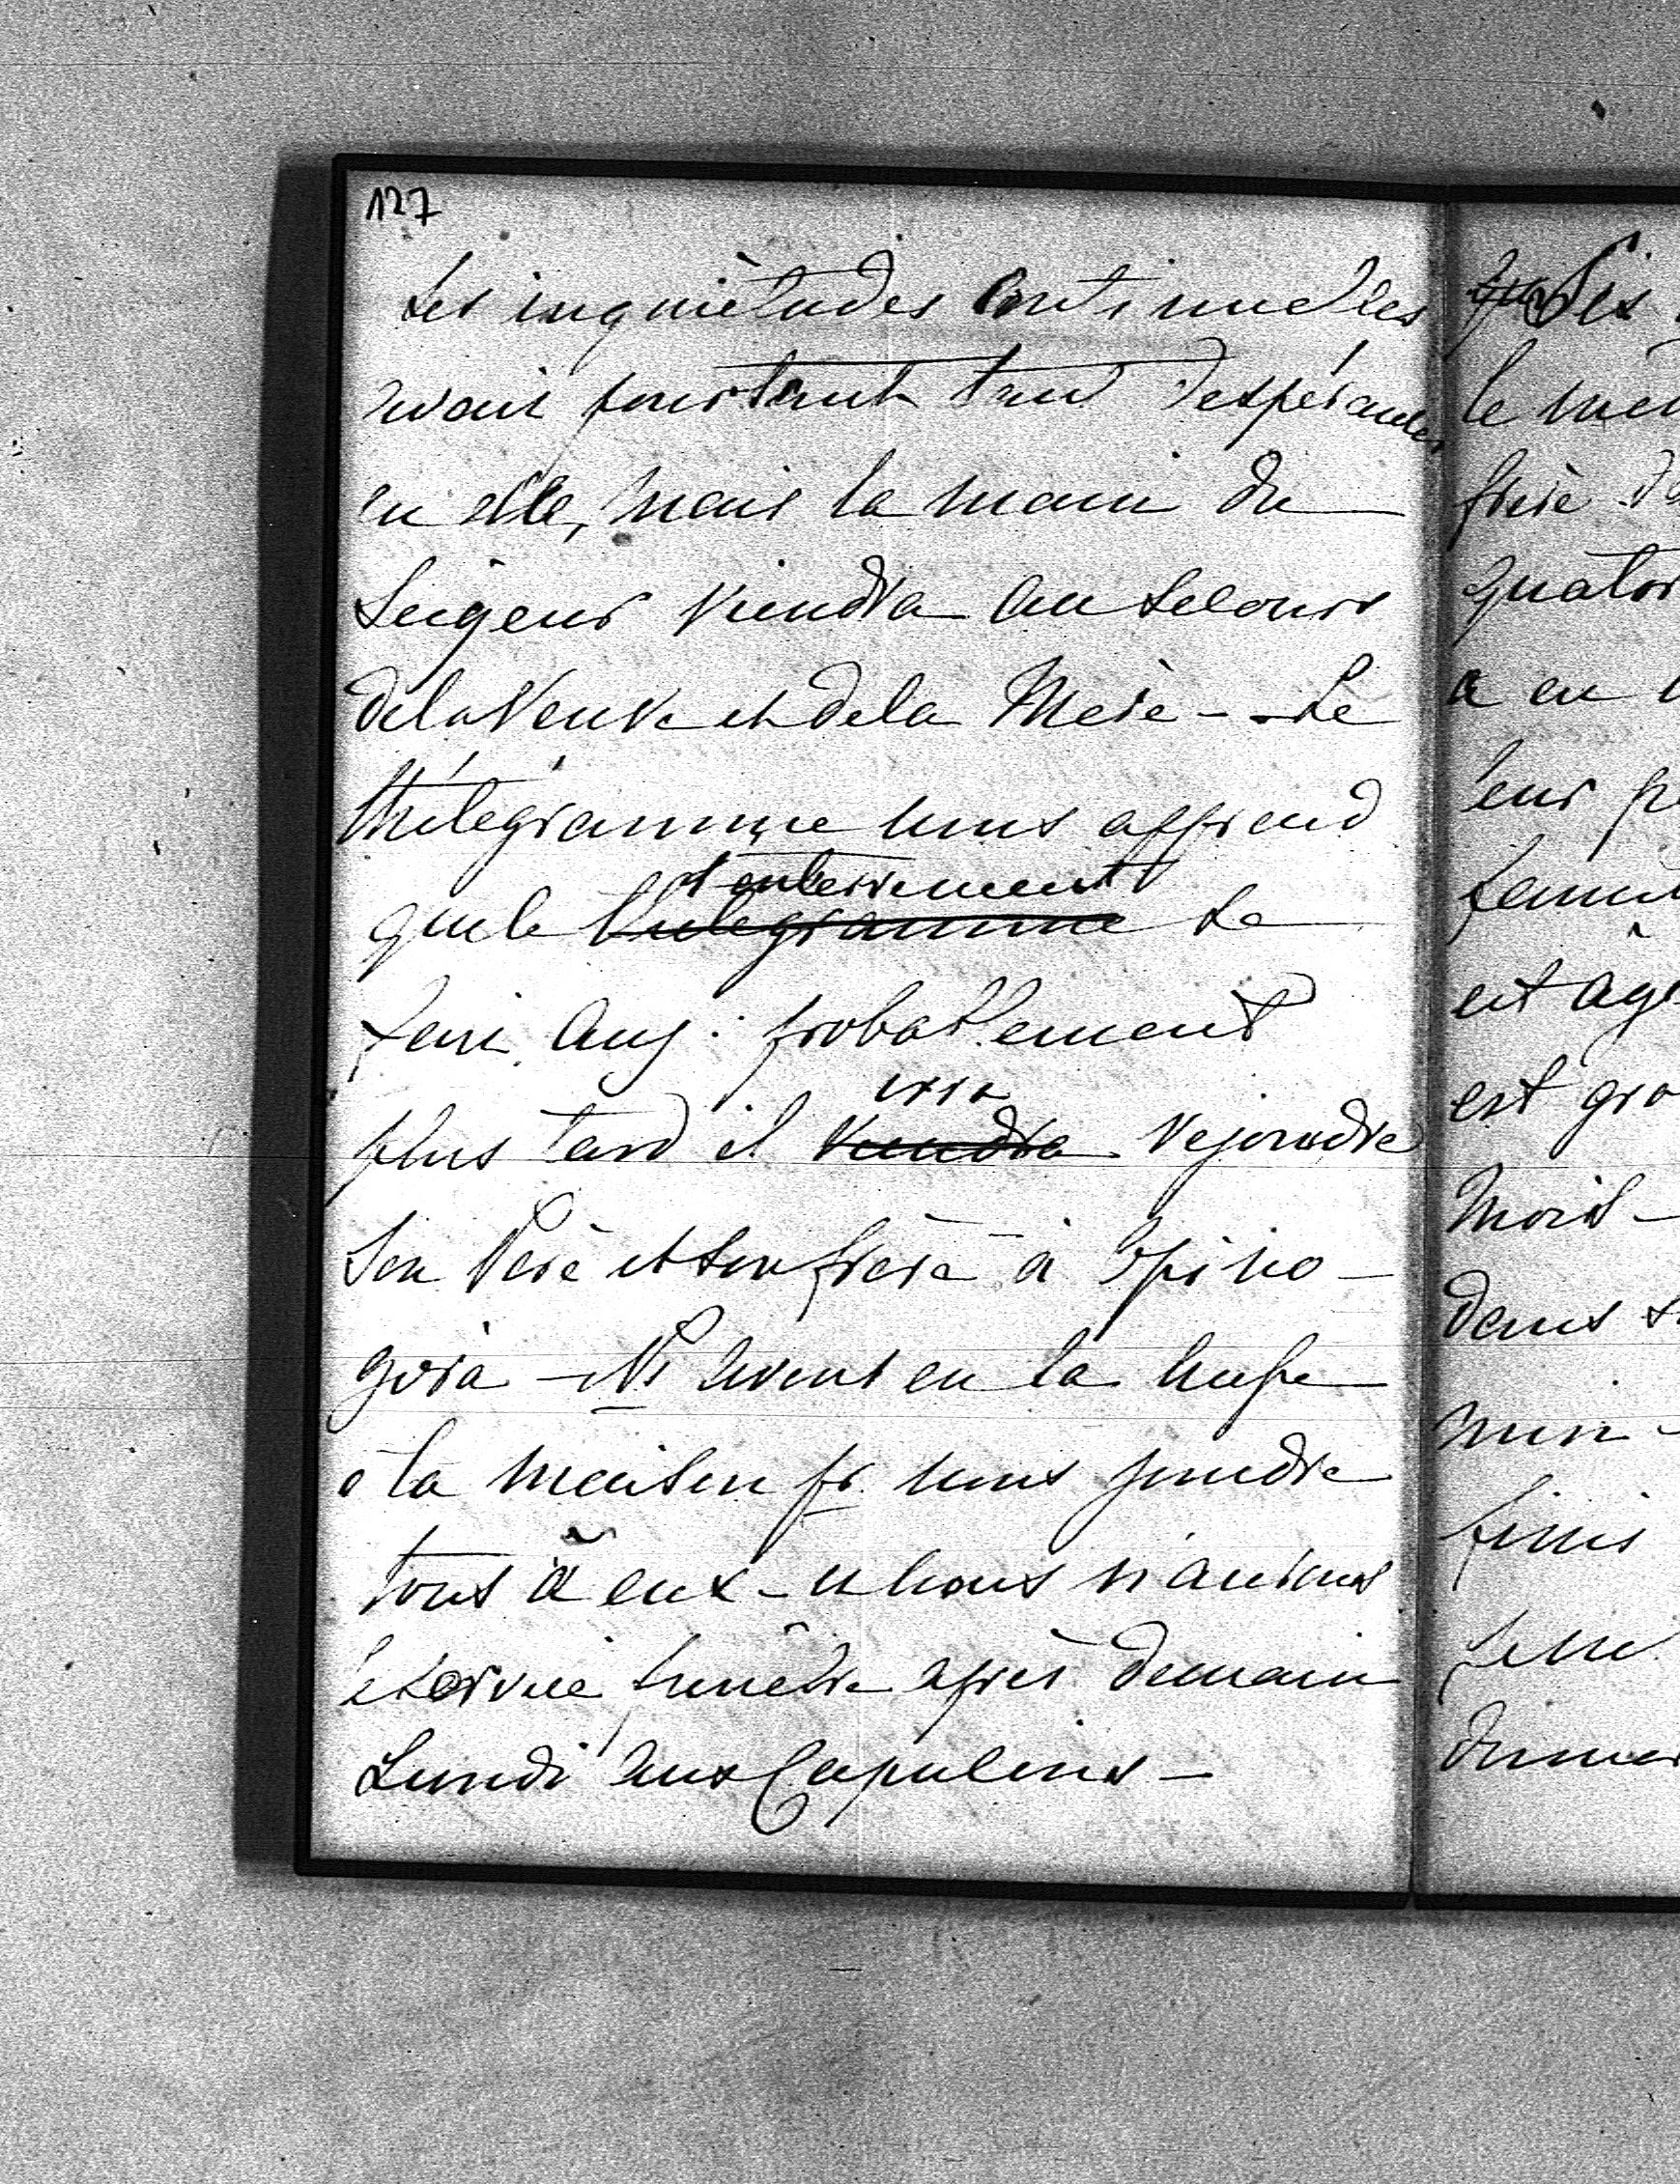 127
Les inquiètudes Continuelles
avait pourtant tant d'espérances
en elle, mais la main du
Seigeur viendra au secours
de la Veuve et de la Merè - Le
thélégramme nous apprend
que le l'enterrement se
fera Aug: probablement
plus tard il irra rejoindre
Son Perè et son frerè à Opino-
gora - Ns avons eu la messe
à la maison pr. nous joindre
tous à eux - et nous n'aurons
le service funèbre après demain
Lundi aux Capulins -
Ses
le
frerè
quator
a eu
leur
est agé
est
Mois -
dans
finis